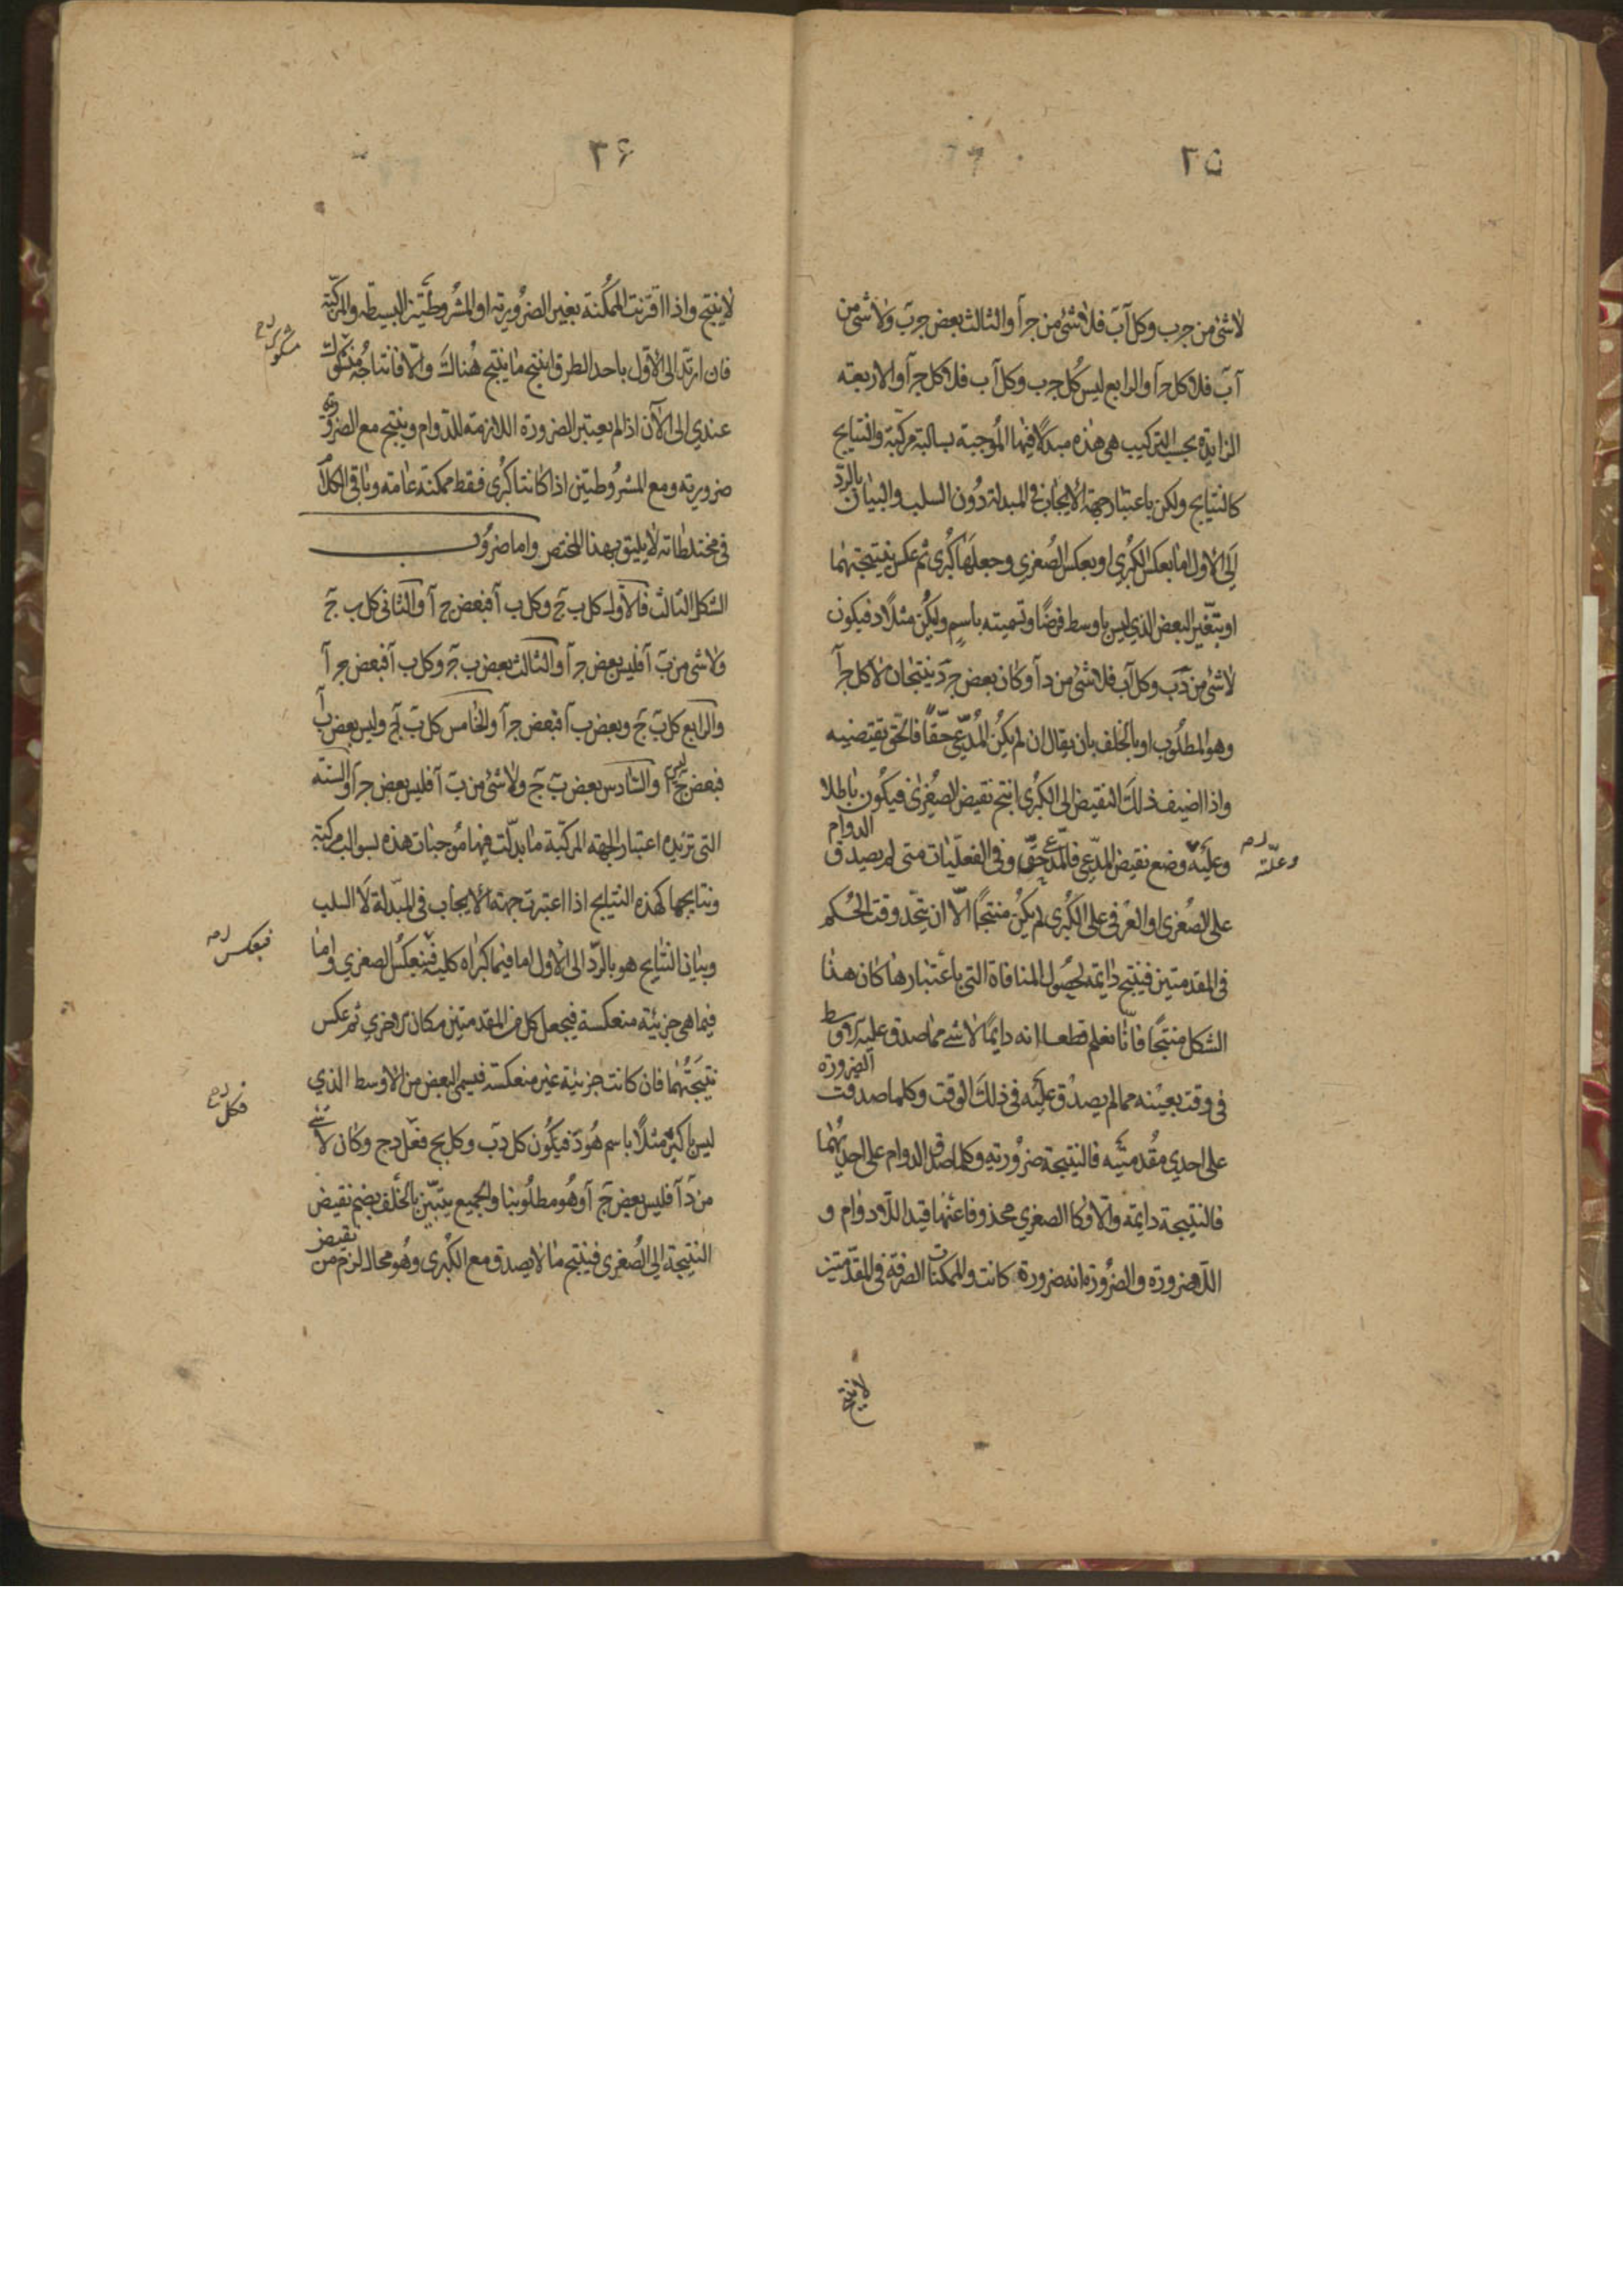 ٢٥
لاشئ من ج ب وكل آ ب فلاشئ من ج آ والثالث بعض ج ب ولاشئ من
آ ب فلا كل ج آ والرابع ليس كل ج ب وكل آ ب فلا كل ج آ والاربعة
الزايدة بحسب التركيب هى هذه مبدلا فيها الموجبة بسالبة مركبة والنتايج
كالنتايج ولكن باعتبار جهة الايجاب فى المبدلة دون السلب والبيان بالرد
الى الاول اما بعكس الكبرى او بعكس الصغرى وجعلها كبرى ثم عكس نتيجتها
او بتعين البعض الذي ليس باوسط فرضا وتسميته باسم وليكن مثلا د فيكون
لاشئ من د ب وكل آ ب فلاشئ من د آ وكان بعض ج د ينتجان لا كل ج آ
وهو المطلوب او بالخلف بان يقال ان لم يكن المدعى حقا فالحق نقيضه
واذا اضيف ذلك النقيض الى الكبرى انتج نقيض الصغرى فيكون باطلا
وعلته وضع نقيض المدعى فالمدعى حق وفى الفعليات متى لم يصدق الدوام
وعلته
على الصغرى او العرفى على الكبرى لم يكن منتجا الا ان يتحد وقت الحكم
فى المقدمتين فينتج دايمة لحصول المنافاة التى باعتبارها كان هذا
الشكل منتجا فانا نعلم قطعا انه دايما لاشئ مما صدق عليه الاوسط
فى وقت بعينه مما لم يصدق عليه فى ذلك الوقت وكلما صدقت الضرورة
على احدي مقدمتيه فالنتيجة ضرورية وكلما صدق الدوام على احديهما
فالنتيجة دايمة والا فكالصغري محذوفا عنها قيد اللادوام و
اللاضرورة والضرورة اية ضرورة كانت والممكنات الصرفة فى المقدمتين
لا ينتج
٣۶
لاينتج واذا اقترنت الممكنة بغير الضرورية او المشروطتين البسيطة والمركبة
فان ارتد الى الاول باحد الطرق انتج ما ينتج هناك والا فانتاجه مشكوك
مشكوك
عندي الى الآن اذا لم يعتبر الضرورة اللازمة للدوام وينتج مع الضرورية
ضرورية ومع المشروطتين اذا كانتا كبرى فقط ممكنة عامة وباقى الكلام
فى مختلطاته لا يليق بهذا المختصر واما ضروب
الشكل الثالث فالاول كل ب ج وكل ب آ فبعض ج آ والثانى كل ب ج
ولاشئ من ب آ فليس بعض ج آ والثالث بعض ب ج وكل ب آ فبعض ج آ
والرابع كل ب ج وبعض ب آ فبعض ج آ والخامس كل ب ج وليس بعض ب آ
فبعض ج ليس آ والسادس بعض ب ج ولاشئ من ب آ فليس بعض ج آ والستة
التى تزيده اعتبار الجهة المركبة ما بدلت فيها موجبات هذه بسوالب مركبة
ونتايجها كهذه النتايج اذا اعتبرت جهة الايجاب فى المبدلة لا السلب
وبيان النتايج هو بالرد الى الاول اما فيما كبراه كلية فبعكس الصغري واما
فبعكس
فيما هى جزئية منعكسة فيجعل كل من المقدمتين مكان الاخري ثم عكس
نتيجتهما فان كانت جزئية غير منعكسة فيسمى البعض من الاوسط الذي
ليس باكبر مثلا باسم هو د فيكون كل د ب وكل ب ج فكل د ج وكان لاشئ
فكل
من د آ فليس بعض ج آ وهو مطلوبنا والجميع يتبين بالخلف بضم نقيض
النتيجة الى الصغرى فينتج ما لا يصدق مع الكبرى وهو محال لزم من نقيض